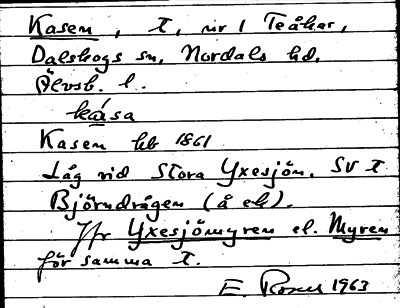 Kasen, t, nr 1 Teåker,
Dalskogs sn, Nordals hd,
Älvsb. l.
kása
Kasen hb 1861
Låg vid Stora Yxesjön. SV t
Björndrågen (å ek).
Jfr Yxesjömyren el. Myren
för samma t.
E. Rosen 1963